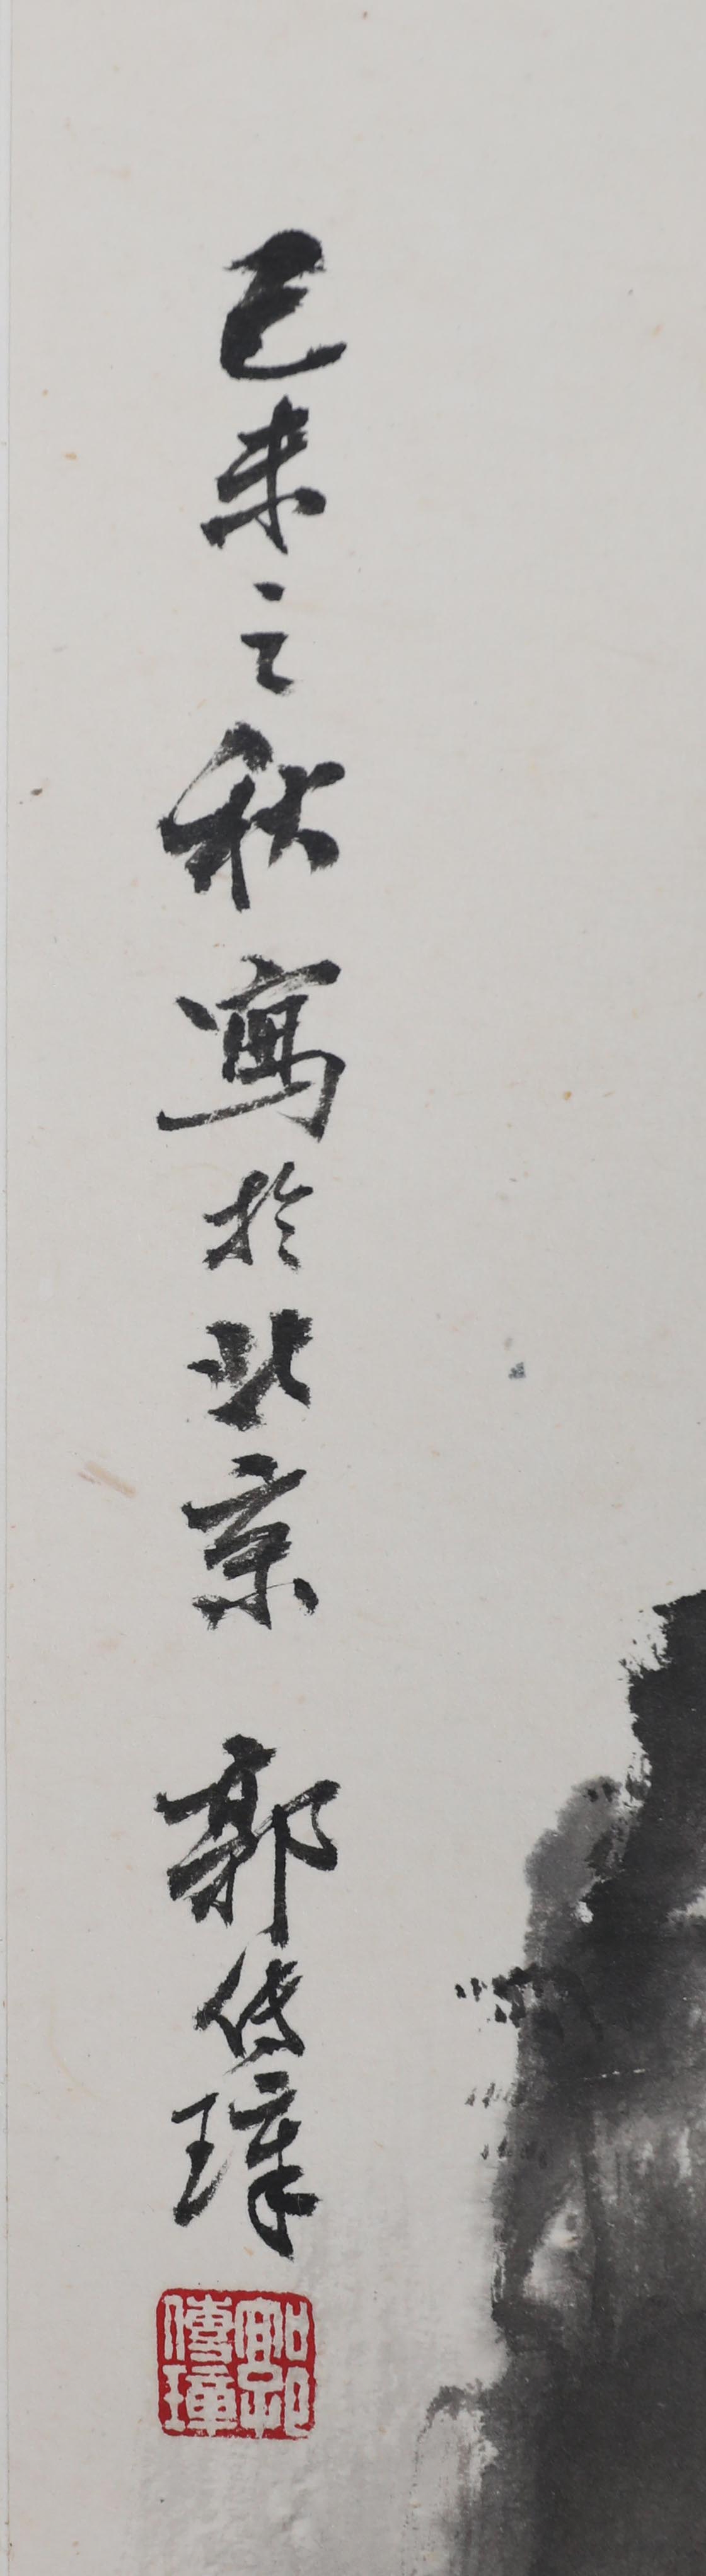 己未之秋寫於北京 郭傳璋
郭傳璋印